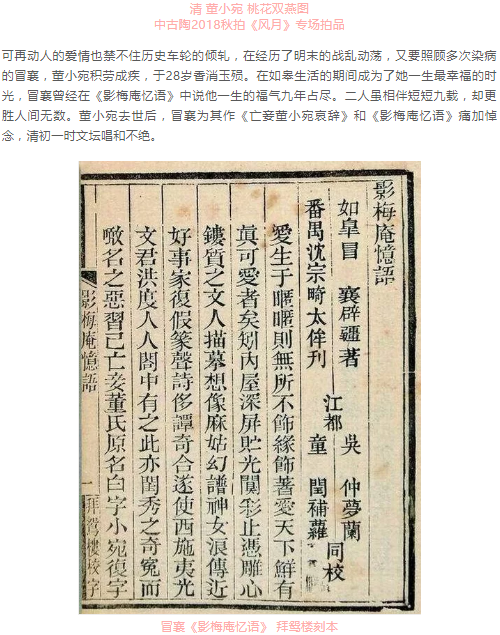 清 董小宛 桃花双燕图
中古陶2018秋拍《风月》专场拍品
可再动人的爱情也禁不住历史车轮的倾轧，在经历了明末的战乱动荡，又要照顾多次染病
的冒襄，董小宛积劳成疾，于28岁香消玉殒。在如皋生活的期间成为了她一生最幸福的时
光，冒襄曾经在《影梅庵忆语》中说他一生的福气九年占尽。二人虽相伴短短九载，却更
胜人间无数。董小宛去世后，冒襄为其作《亡妾董小宛哀辞》和《影梅庵忆语》痛加悼
念，清初一时文坛唱和不绝。
影梅庵憶語
如皐冒 襄辟疆著 吳 仲夢蘭
番禺沈宗畸太侔刊 江都 童 閏補蘿 同校
愛生于暱暱則無所不飾緣飾著愛天下鮮有
眞可愛者矣矧內屋深屏貯光闃彩止憑雕心
鏤質之文人描摹想像麻姑幻譜神女浪傳近
好事家復假篆聲詩侈譚奇合遂使西施夷光
文君洪度人人閤中有之此亦閨秀之奇冤而
噉名之惡習已亡妾董氏原名白字小宛復字
影梅庵憶語
一
拜鴛樓校字
冒襄《影梅庵忆语》 拜鸳楼刻本